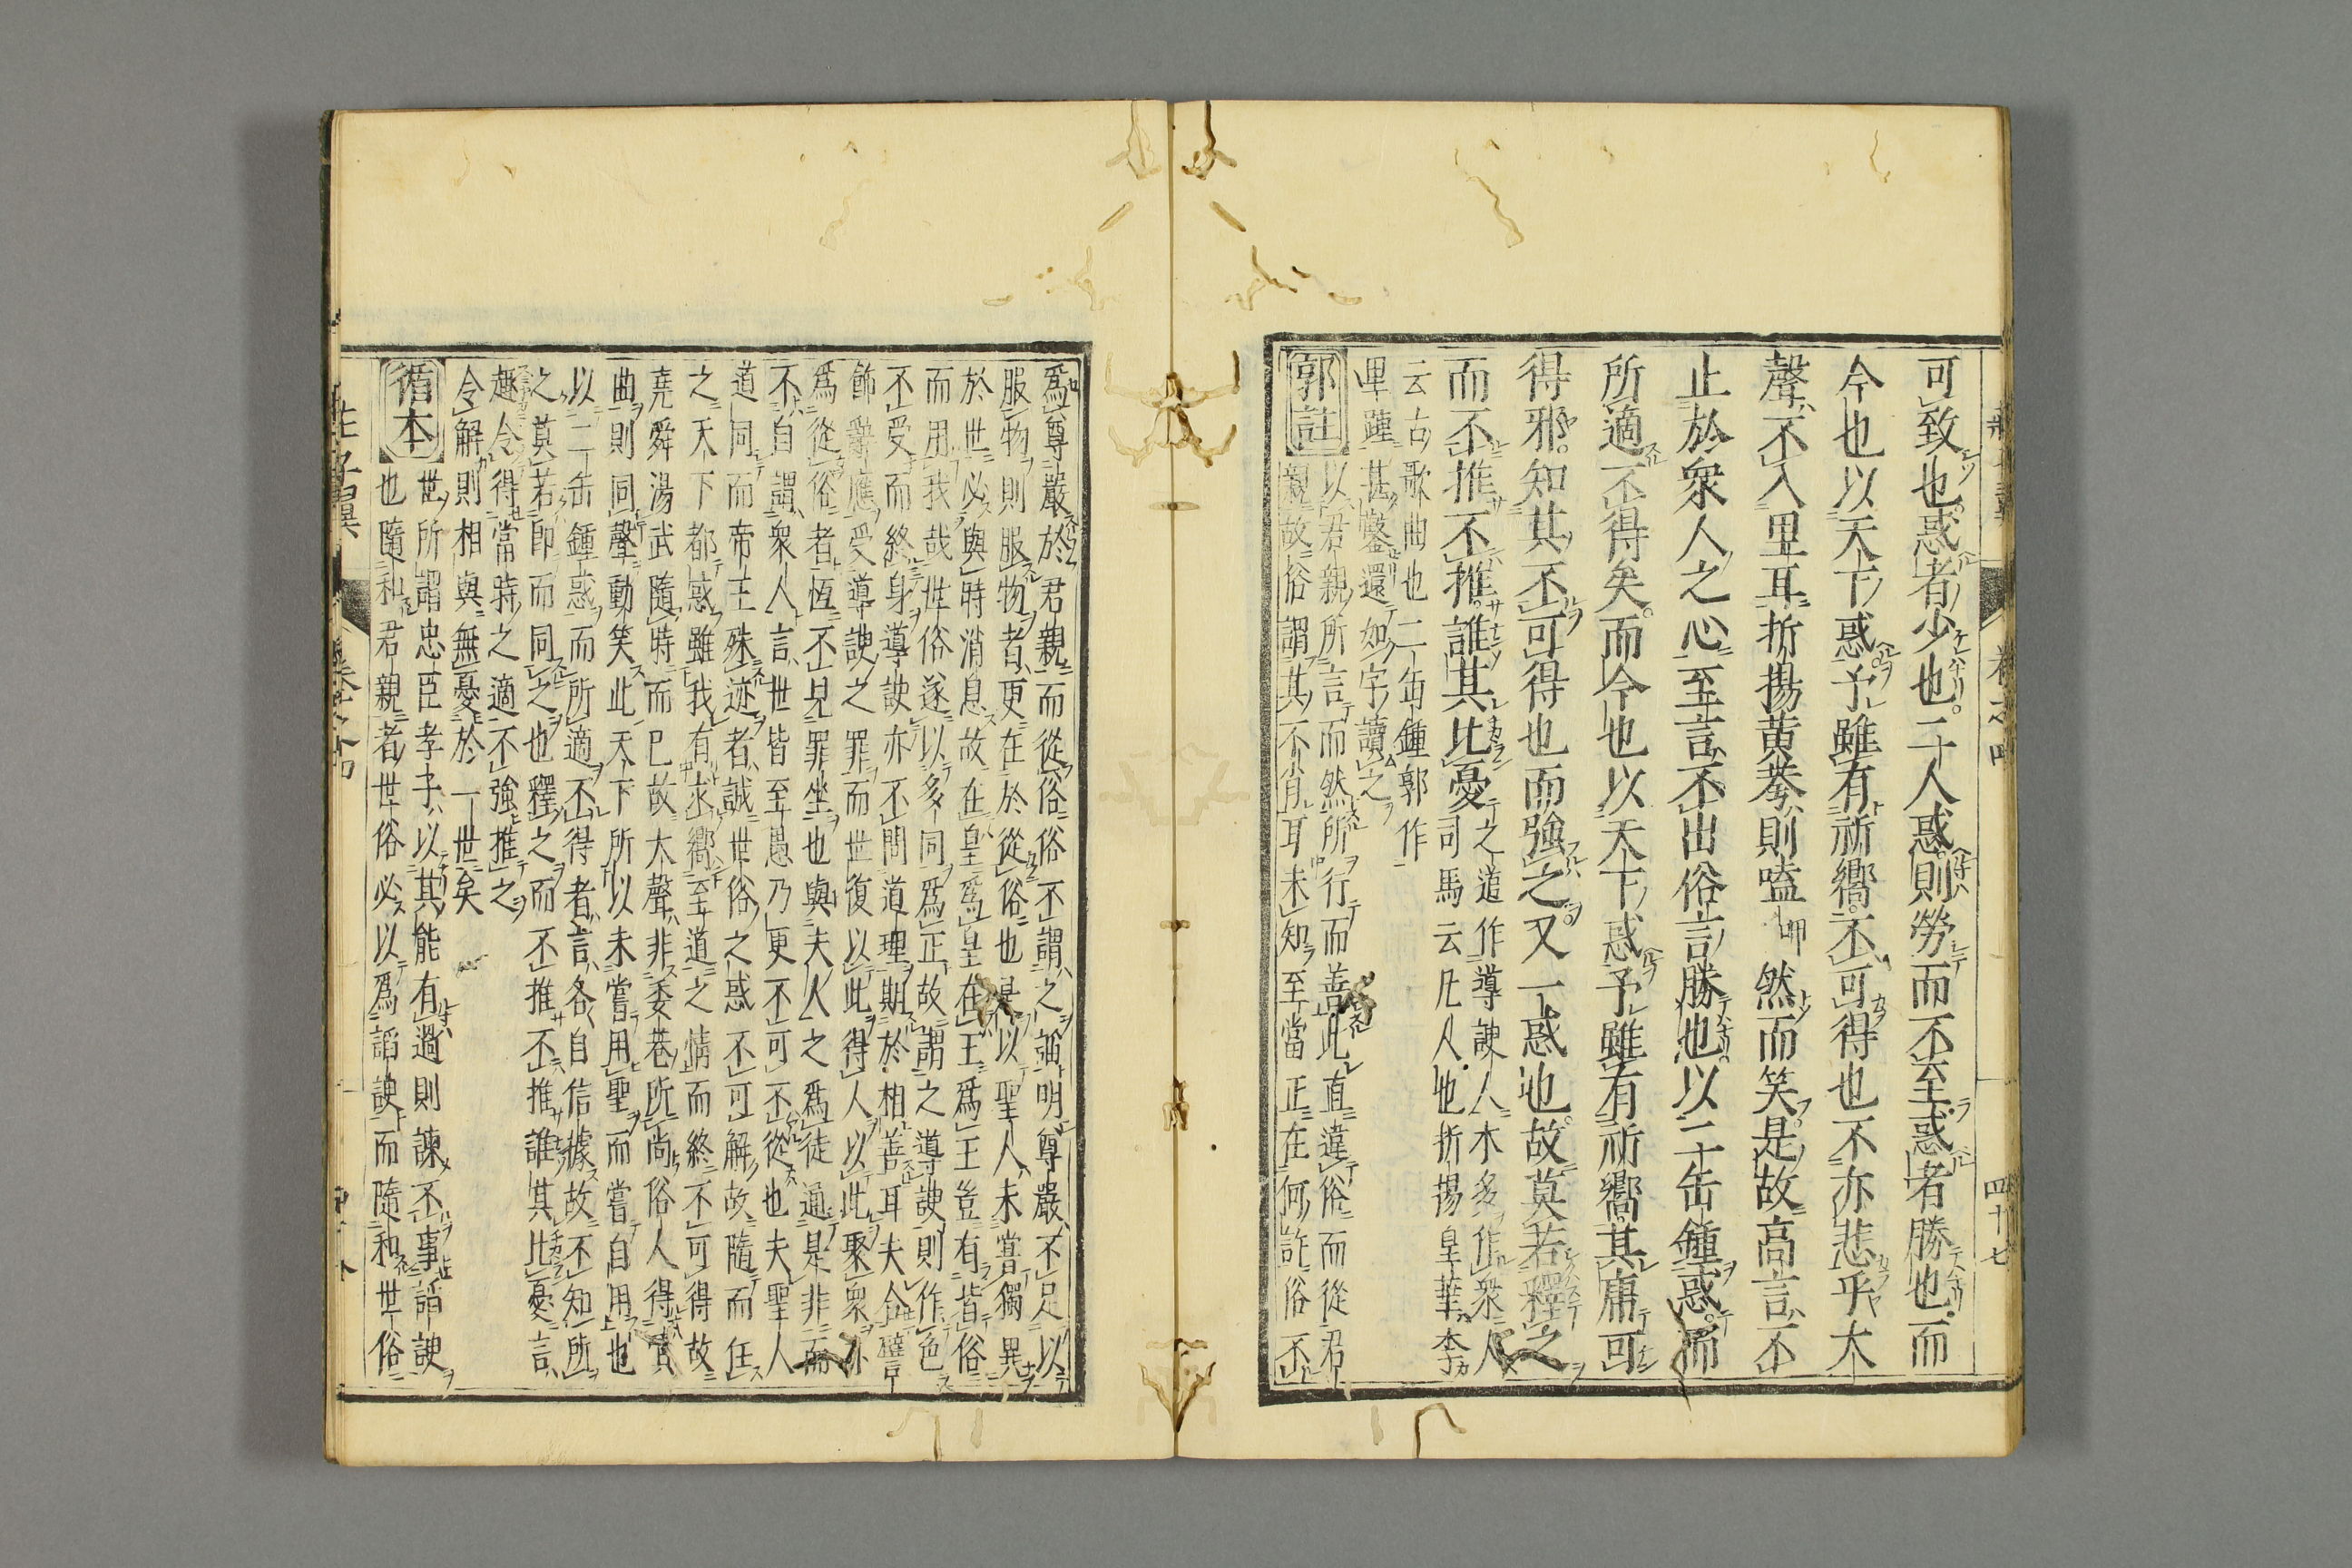 可致也惑者少也二人惑則勞而不至惑者勝也而
今也以天下惑予雖有祈嚮不可得也不亦悲乎大
聲不入里耳折揚黃荂則嗑呷然而笑是故高言不
止於衆人之心至言不出俗言勝也以二缶鍾惑而
所適不得矣而今也以天下惑予雖有祈嚮其庸可
得邪知其不可得也而強之又一惑也故莫若釋之
而不推不推誰其比憂
之道作導諛人木多作衆人
司馬云凡人也折揚皇華李
云古歌曲也二缶鍾郭作
還如字讀之
郭註
以君親所言而然所行而善此直違俗而從君
親故俗謂其不肖耳未知至當正在何許俗不
四十七
爲尊嚴於君親而從俗俗不謂之諂明尊嚴不足以
服物則服物者更在於從俗也是以聖人未嘗獨異
於世必與時消息故在皇爲皇在王爲王豈有背俗
而用我哉世俗遂以多同爲正故謂之導諛則作色
不受而終身導諛亦不問道理期於相善耳夫合譬
飾辭應受導諛之罪而世復以此得人以此聚衆亦
爲從俗者恆不見罪坐也與夫人之爲徒通是非而
不自謂衆人言世皆至愚乃更不可不從也夫聖人
道同而帝王殊迹者誠世俗之惑不可解故隨而任
之天下都惑雖我有求嚮至道之情而終不可得故
堯舜湯武隨時而已故大聲非委巷所尚俗人得嘖
曲則同聲動笑此天下所以未嘗用聖而嘗自用也
以二缶鍾惑而所適不得者言各自信據故不知所
之莫若即而同之也釋之而不推不推誰其比憂言
趣令得當時之適不強推之
令解則相與無憂於一世矣
循本
世所謂忠臣孝子以其能有過則諫不事諂諛
也隨和君親者世俗必以爲諂諛而隨和世俗